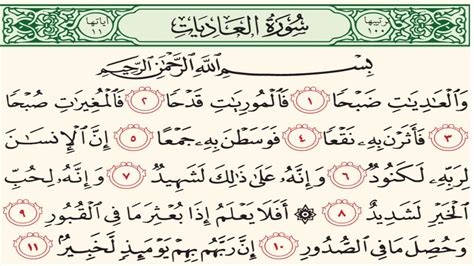 ترتيبها ١٠٠ سورة العاديات آياتها ١١
بِسْمِ اللَّهِ الرَّحْمَٰنِ الرَّحِيمِ
وَالْعَادِيَاتِ ضَبْحًا ١ فَالْمُورِيَاتِ قَدْحًا ٢ فَالْمُغِيرَاتِ صُبْحًا
٣ فَأَثَرْنَ بِهِ نَقْعًا ٤ فَوَسَطْنَ بِهِ جَمْعًا ٥ إِنَّ الْإِنسَانَ
لِرَبِّهِ لَكَنُودٌ ٦ وَإِنَّهُ عَلَىٰ ذَٰلِكَ لَشَهِيدٌ ٧ وَإِنَّهُ لِحُبِّ
الْخَيْرِ لَشَدِيدٌ ٨ ۞ أَفَلَا يَعْلَمُ إِذَا بُعْثِرَ مَا فِي الْقُبُورِ ٩
وَحُصِّلَ مَا فِي الصُّدُورِ ١٠ إِنَّ رَبَّهُم بِهِمْ يَوْمَئِذٍ لَّخَبِيرٌ ١١